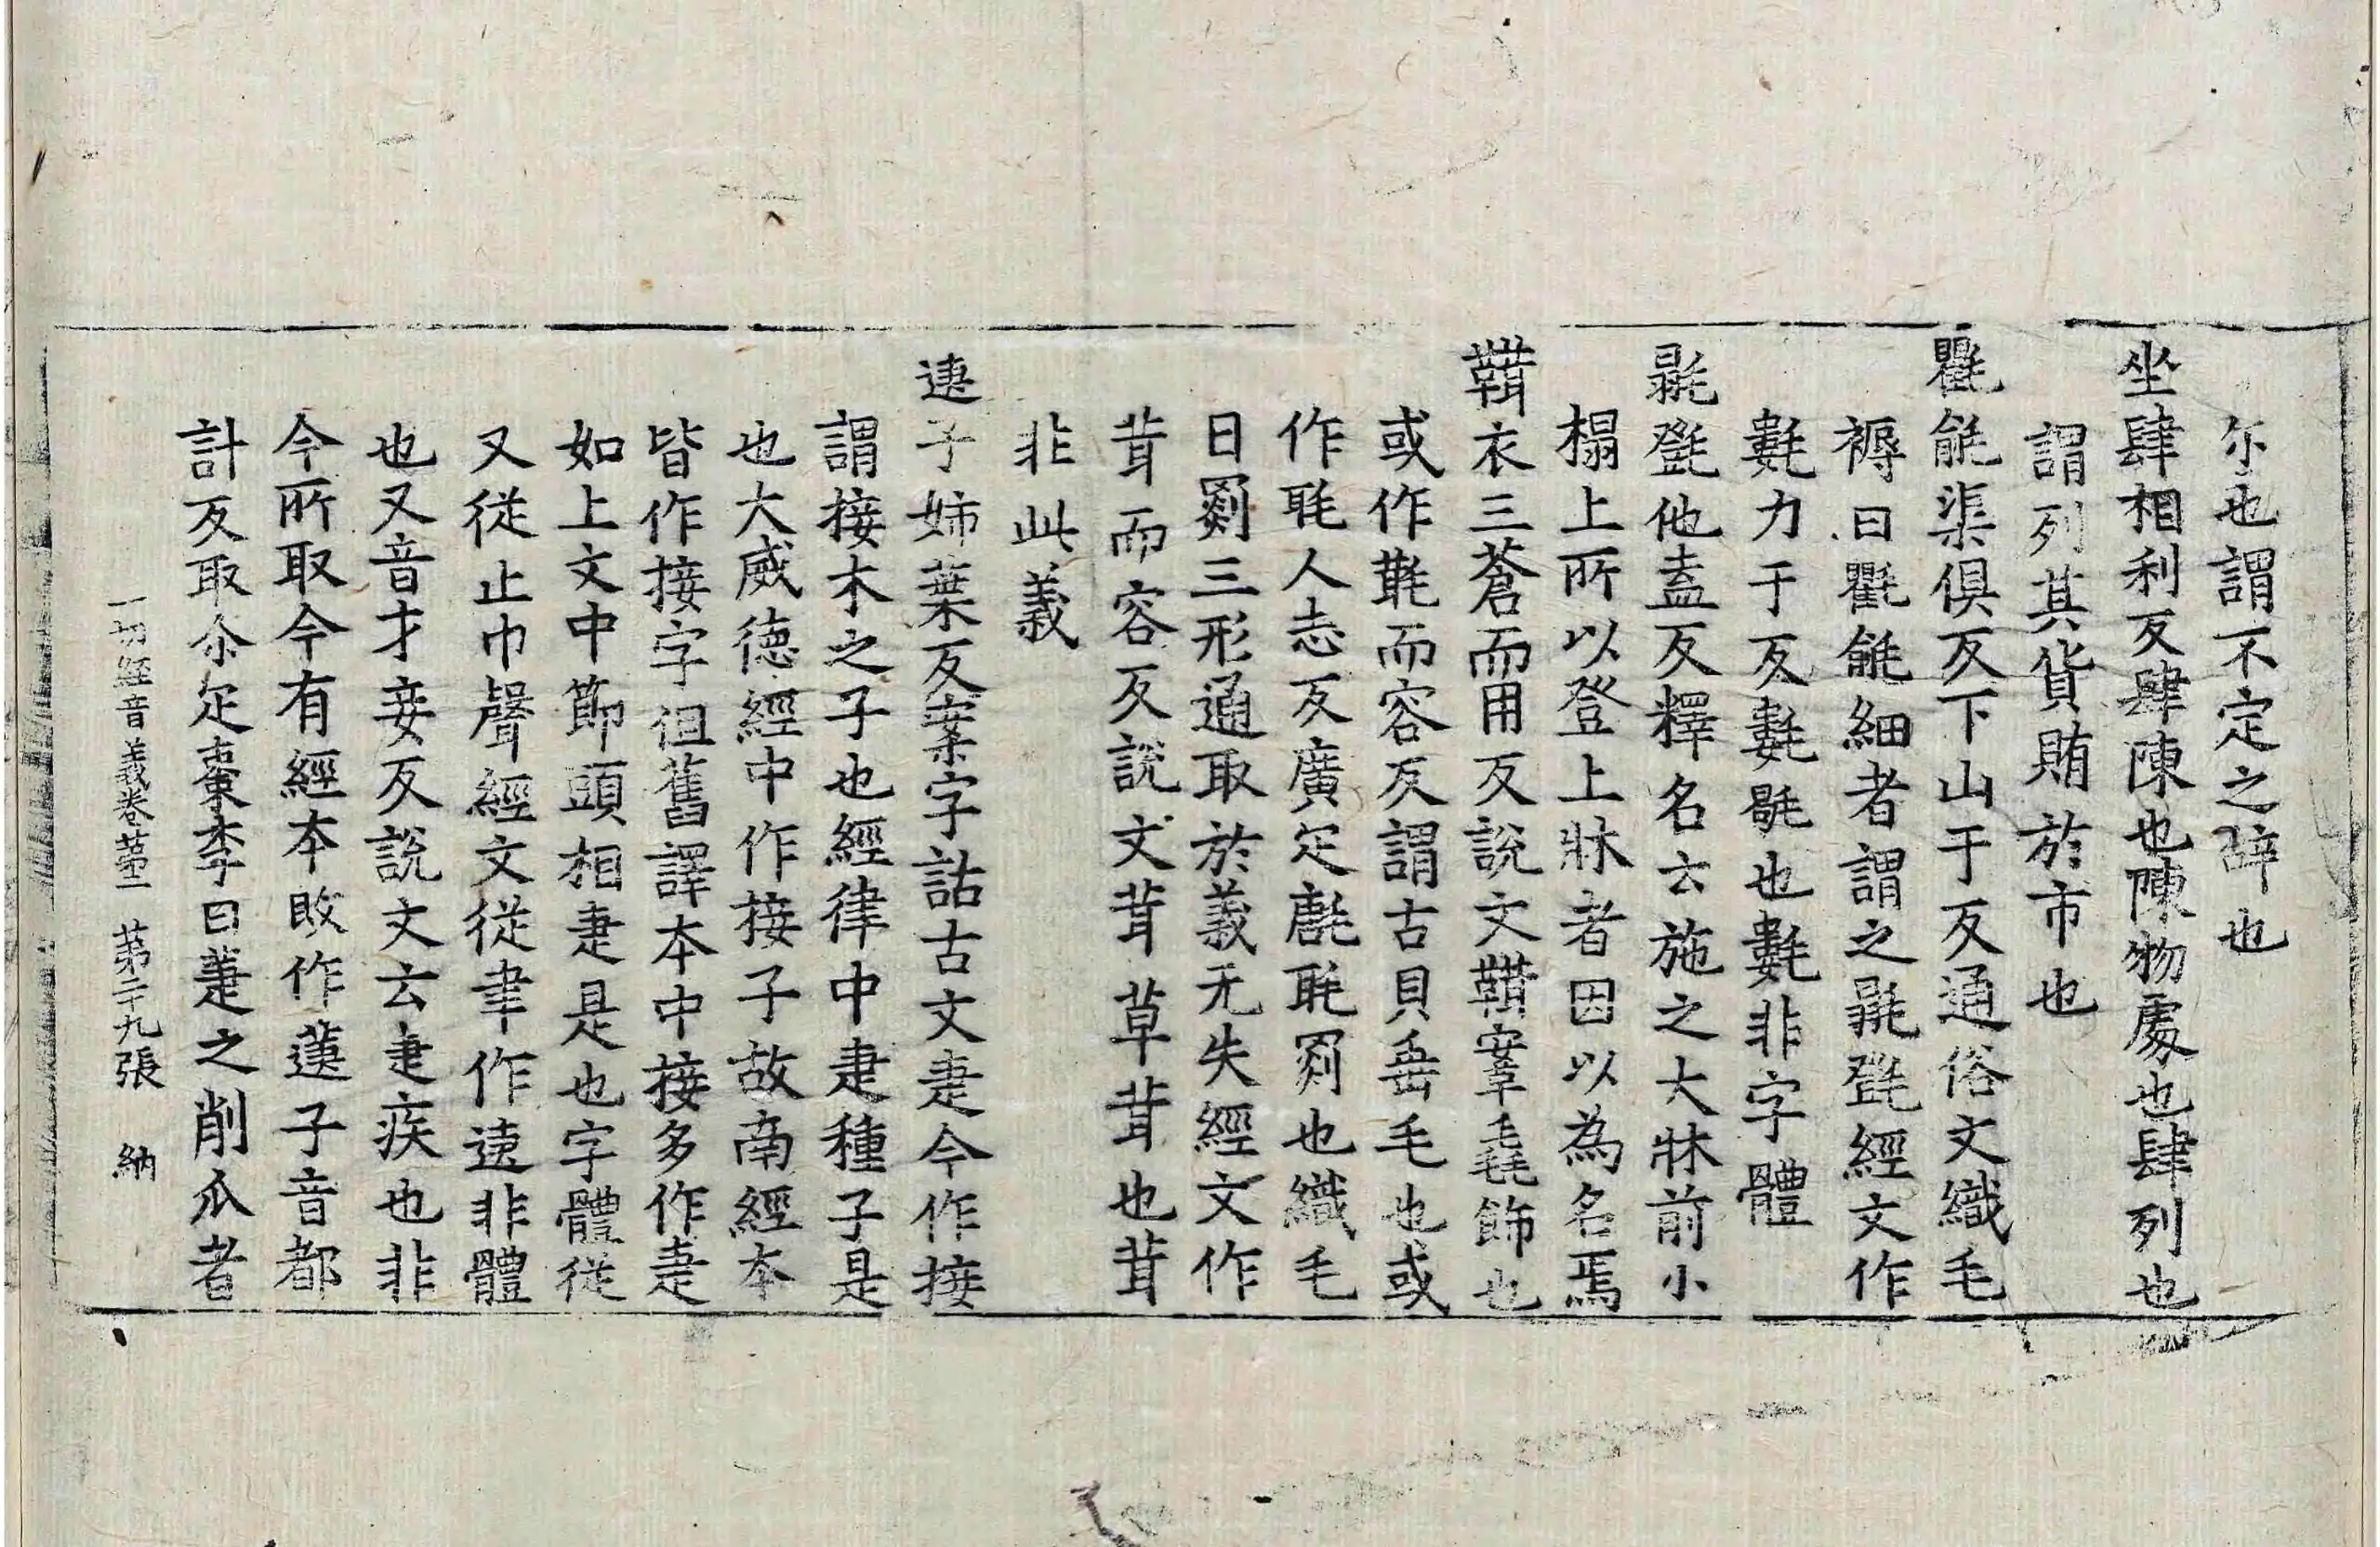 尒也謂不定之辝也
坐肆相利反肆陳也陳物處也肆列也
謂列其貨賄於市也
氍毹渠俱反下山于反通俗文織毛
褥曰氍毹細者謂之毾㲪經文作
氀力于反氀毼也氀非字體
毾㲪他盍反釋名云施之大牀前小
榻上所以登上牀者因以為名焉
䩸衣三蒼而用反說文䩸鞌毳飾也
或作㲨而容反謂古貝垂毛也或
作毦人志反廣疋㲪毦罽也織毛
曰罽三形通取於義无失經文作
茸而容反說文茸草茸也茸
非此義
䢣子姊葉反案字詁古文疌今作接
謂接木之子也經律中疌種子是
也大威德經中作接子故南經本
皆作接字但舊譯本中接多作疌
如上文中節頭相疌是也字體從
又從止巾聲經文從聿作䢖非體
也又音才妾反說文云疌疾也非
今所取今有經本改作蓮子音都
計反取尒疋棗李曰疐之削瓜者
一切經音義卷苐二 苐二十九張 納